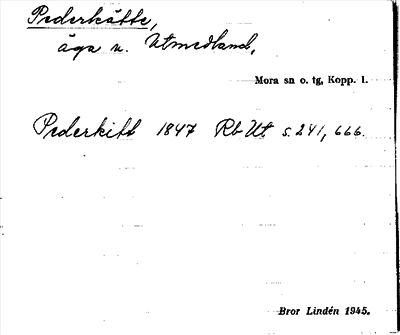 Pederkätte,
äga n. Utmedland.
Mora sn o. tg, Kopp. l.
Pederkitt 1847 Rb Ut s. 241, 666.
Bror Lindén 1945.